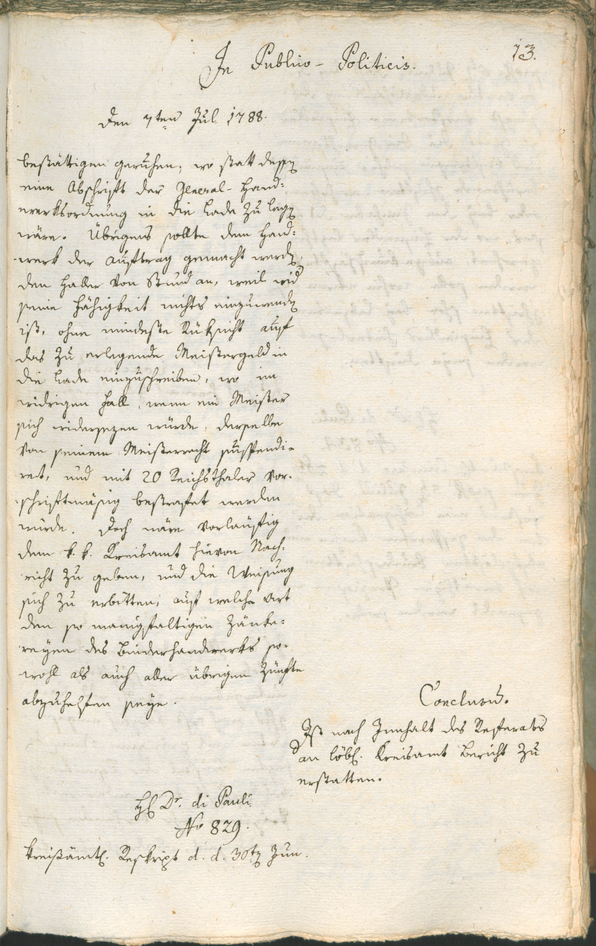 13.
In Publico-Politicis.
den 7ten Jul 1788.
bestättigen geruhen, wo statt dessen
eine Abschrift der General-Hand-
werksordnung in die Lade zu legen
wäre. Übrigens sollte dem Hand-
werk der Auftrag gemacht werden,
den Haller von Stund an, weil wid
seine Fähigkeit nichts einzuwenden
ist, ohne mindeste Rüksicht auf
das zu erlegende Meistergeld in
die Lade einzuschreiben, wo im
widrigen Fall, wenn ein Meister
sich widersezen würde, derselbe
von seinem Meisterrecht suspendi-
ret, und mit 20 Reichsthaler vor-
schriftmäsig bestrafet werden
würde. Doch wäre vorläufig
dem k. k. Kreisamt hievon Nach-
richt zu geben, und die Weisung
sich zu erbitten, auf welche Art
den so manigfaltigen Zänke-
reyen des Binderhandwerks so-
wohl als auch aller übrigen Zünfte
abzuhelfen seye.
Conclusum.
Ist nach Innhalt des Referats
an löbl. Kreisamt Bericht zu
erstatten.
H. Dr. di Pauli
No 829.
Kreisämtl. Reskript d. d. 30ten Jun.